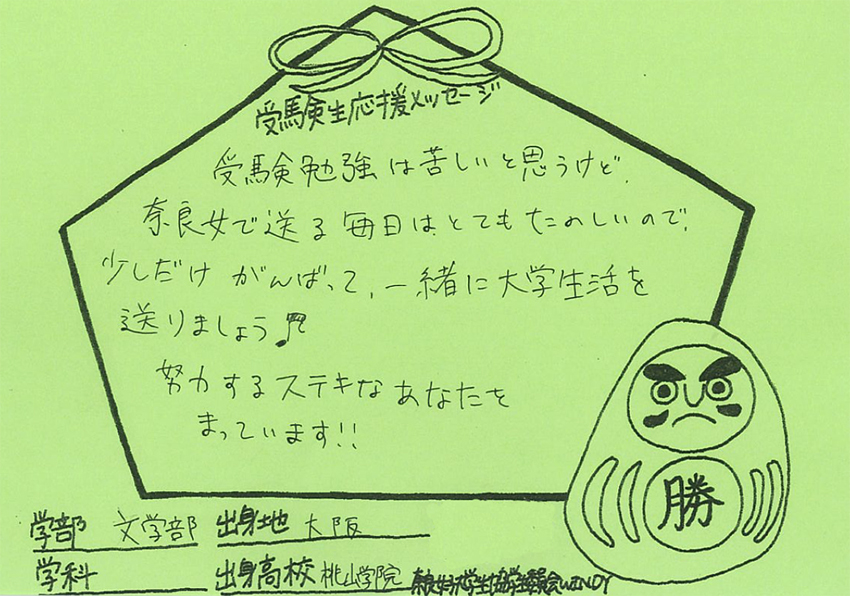 受験生応援メッセージ
受験勉強は苦しいと思うけど、
奈良女で送る毎日は、とてもたのしいので、
少しだけ がんばって、一緒に大学生活を
送りましょう♬
努力するステキなあなたを
まっています!!
勝
学部 文学部 出身地 大阪
学科 出身高校 桃山学院 WINDY